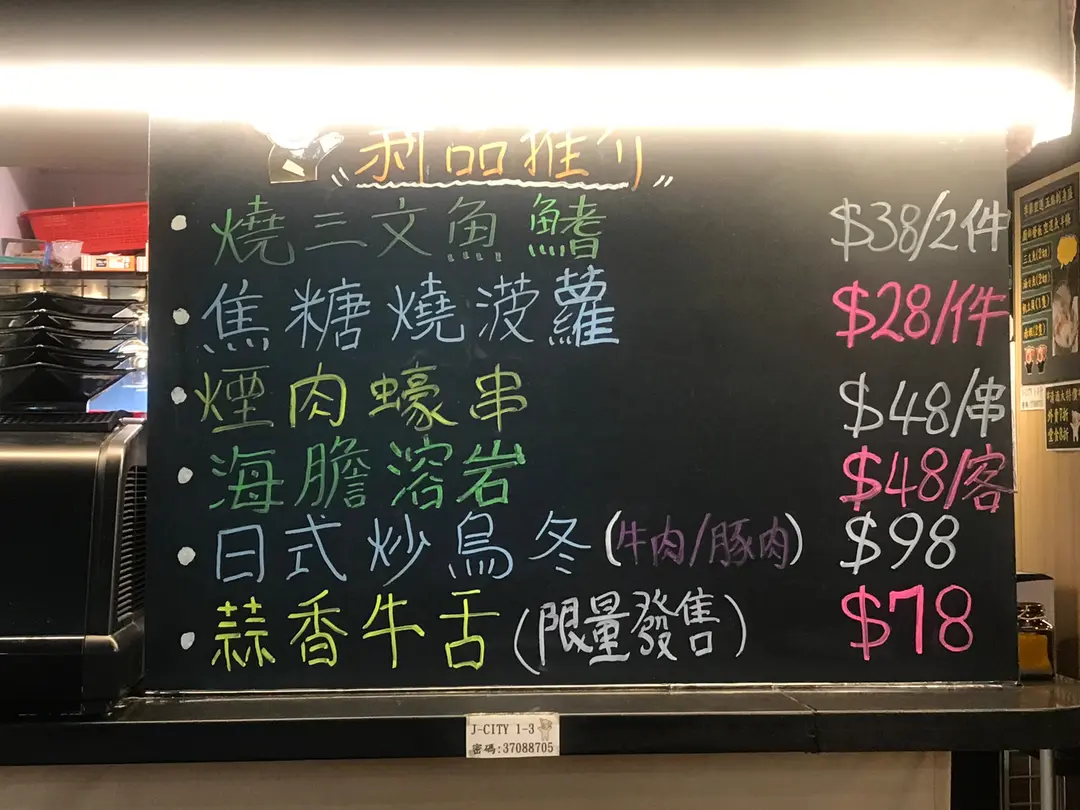 新品推介
燒三文魚鰭 $38/2件
焦糖燒菠蘿 $28/件
煙肉蠔串 $48/串
海膽溶岩 $48/客
日式炒烏冬(牛肉/豚肉) $98
蒜香牛舌(限量發售) $78
J-CITY 1-3
密碼:37088705